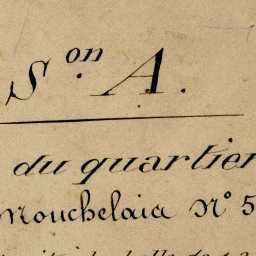 S.on A.
du quartier
Mouchelaia N° 5